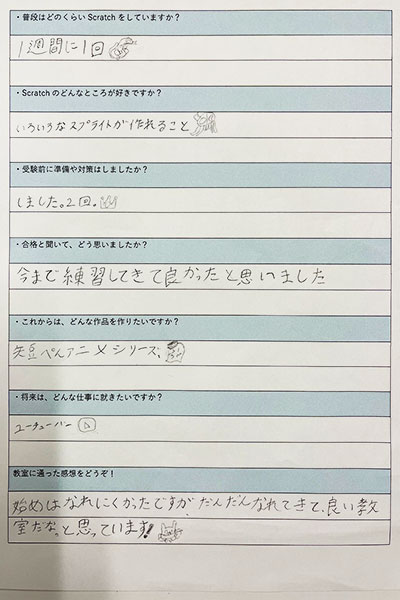 ・普段はどのくらい Scratch をしていますか？
1週間に1回
・Scratch のどんなところが好きですか？
いろいろなスプライトが作れること
・受験前に準備や対策はしましたか？
しました。2回。
・合格と聞いて、どう思いましたか？
今まで練習してきて良かったと思いました
・これからは、どんな作品を作りたいですか？
短ぺんアニメシリーズ、
・将来は、どんな仕事に就きたいですか？
ユーチューバー
教室に通った感想をどうぞ！
始めはなれにくかったですが、だんだんなれてきて、良い教
室だな。と思っています!